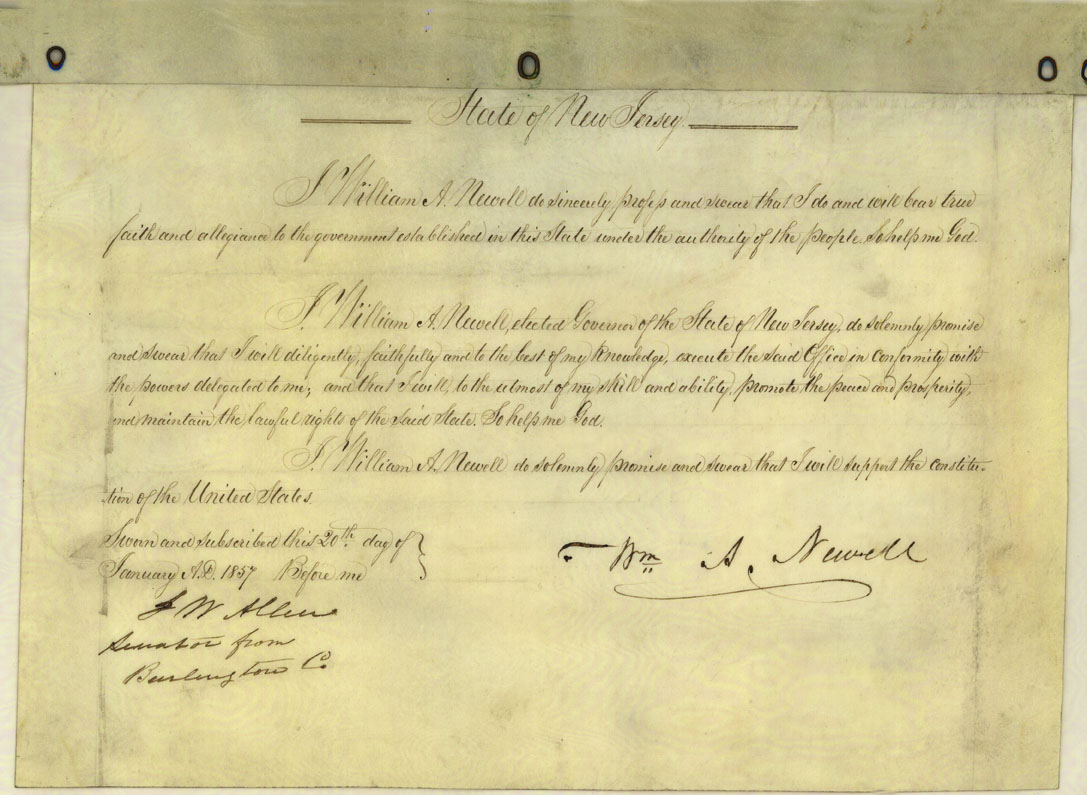 State of New Jersey.
I William A. Newell do sincerely profess and swear that I do and will bear true
faith and allegiance to the government established in this State under the authority of the people. So help me God.
I. William A. Newell, elected Governor of the State of New Jersey, do solemnly promise
and swear that I will diligently, faithfully and to the best of my knowledge, execute the said Office in conformity with
the powers delegated to me; and that I will, to the utmost of my skill and ability, promote the peace and prosperity,
and maintain the lawful rights of the said State. So help me God.
I. William A. Newell do solemnly promise and swear that I will support the constitu-
tion of the United States.
Sworn and subscribed this 20th day of
January A.D. 1857 Before me
Wm A. Newell
J W Allen
Senator from
Burlington Co